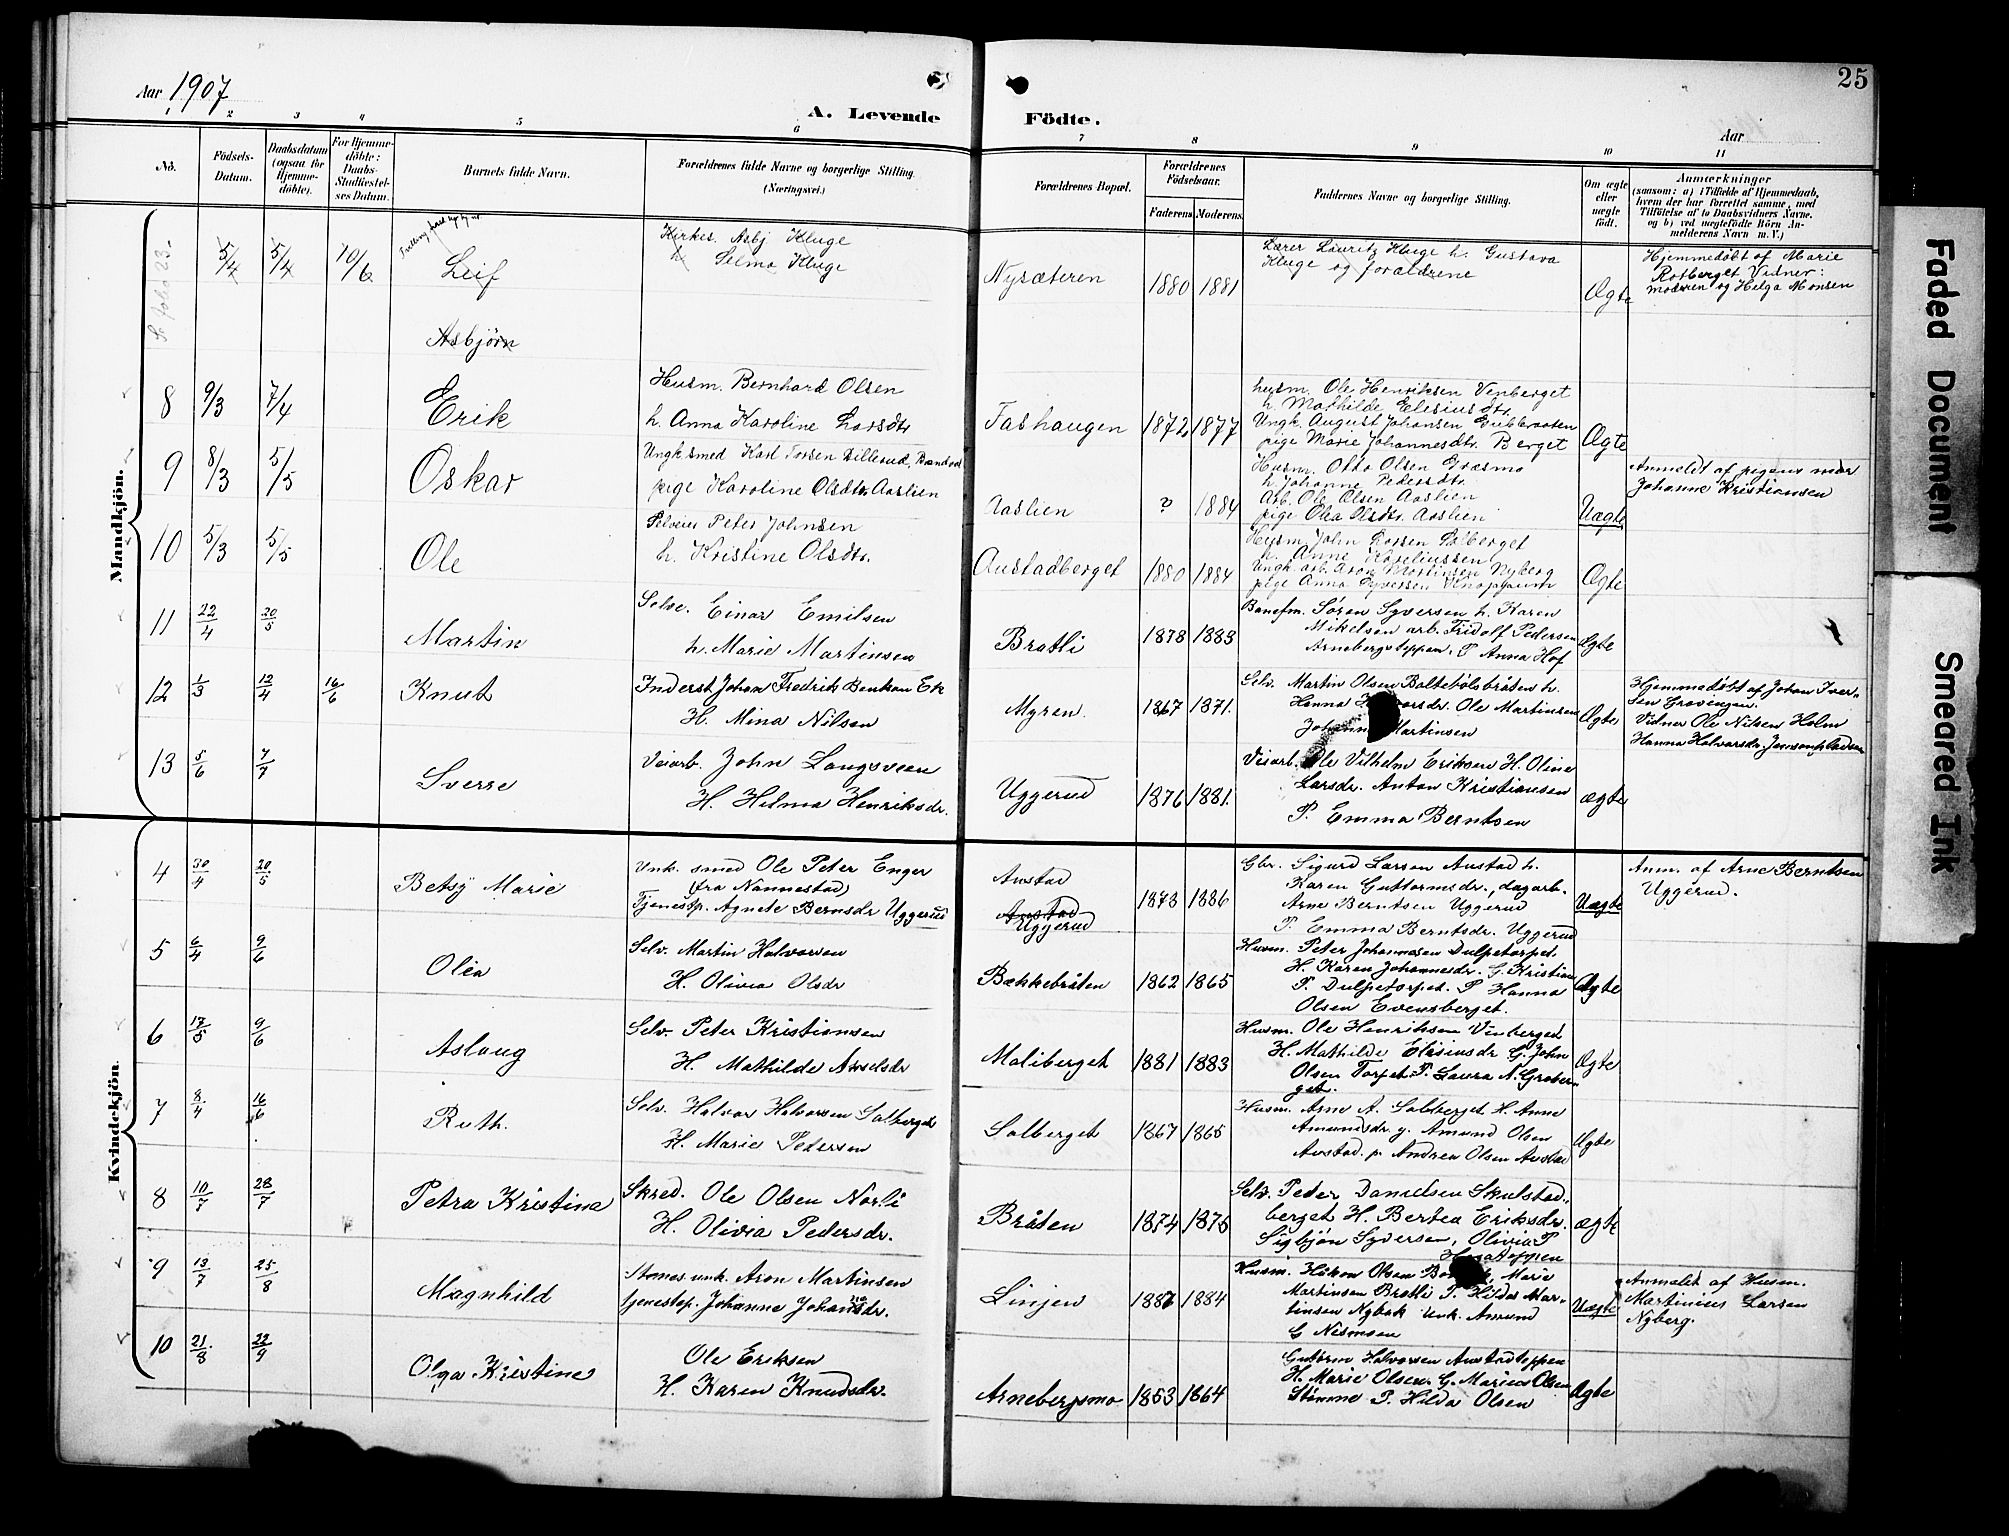 25
Aar 1907
A. Levende Födte.
Aar
1 2 3 4 5 6 7 8 9 10 11
No.
Födsels-Datum.
Daabsdatum (ogsaa for Hjemme-döbte).
For Hjemme-döbte: Daabs-Stadfæstel-ses Datum.
Barnets fulde Navn.
Forældrenes fulde Navne og borgerlige Stilling. (Næringsvei.)
Forældrenes Bopæl.
Forældrenes Födselsaar.
Faderens Moderens
Faddernes Navne og borgerlige Stilling.
Om ægte eller uægte födt.
Anmærkninger
(saasom: a) i Tilfælde af Hjemmedaab,
hvem der har forrettet samme, med
Tilföielse af to Daabsvidners Navne.
og b) ved uægtefödte Börn An-
melderens Navn m. V.)
Mandkjön.
Se folio 23.
5/4 5/4 10/6
Leif
Asbjörn
Kirkes. Asbj Kluge
h. Selma Kluge
Nysæteren
1880 1881
Lærer Lauritz Kluge h. Gustava
Kluge og forældrene
Ægte
Hjemmedöbt af Marie
Rotberget Vidner:
moderen og Helga Monsen
8 9/3 7/4
Erik
Husm. Bernhard Olsen
h. Anna Karoline Larsdtr
Fashaugen
1872 1877
husm. Ole Henriksen Venberget
h. Mathilde Elesiusdtr.
Ungk. August Johansen Gubbraaten
pige Marie Johannesdtr. Berget
Ægte
9 8/3 5/5
Oskar
Ungk. smed Karl Torsen Lillerud,
pige Karoline Olsdtr. Aaslien
Aaslien
? 1884
Husm. Otto Olsen Græsmo
h. Johanne Pedersdtr.
Arb. Ole Olsen Aaslien
pige Olea Olsdtr. Aaslien
Uægte
Anmeldt af pigens mor
Johanne Kristiansen
10 5/3 5/5
Ole
Selveier Peter Johnsen
h. Kristine Olsdtr.
Austadberget
1880 1884
Husm. John Larsen Solberget
h. Anne Kareliussen
Ungk. arb. Aron Martinsen Nyberg
pige Anna Syversen
Ægte
11 22/4 20/5
Martin
Selve. Einar Emilsen
h. Marie Martinsen
Bratli
1878 1883
Banefm. Søren Syversen h. Karen
Mikelsen arb. Fridolf Pedersen
Arnebergstoppen. P. Anna Hof
Ægte
12 1/3 12/4 16/6
Knut
Inderst Johan Fredrik Ek
H. Mina Nilsen
Myren.
1867 1871.
Selv. Martin Olsen Baltebölsbråten h.
Hanna Ole Martinsen
Martinsen
Ægte
Hjemmedöbt af Johan Iver-
sen Gravengen.
Vidner Ole Nilsen Holm
Hanna Halvorsdr.
13 5/6 7/7
Sverre
Veiarb. John Langsveen
H. Hilma Henriksdr.
Uggerud
1876 1881.
Veiarb. Ole Vilhelm Eriksen H. Oline
Larsdr. Anton Kristiansen
P. Emma Berntsen
ægte
Kvindekjön.
4 30/4 20/5
Betsy Marie
Unk. smed Ole Peter Enger
(fra Nannestad)
Tjenestp. Agnete Bernsdr Uggerud
Austad
Austad
Uggerud
1878 1886
Gbr. Sigurd Larsen Austad h.
Karen Guttormsdr., dagarb.
Arne Berntsen Uggerud
P. Emma Berntsdr. Uggerud
Uægte
Anm. af Arne Berntsen
Uggerud.
5 6/4 9/6
Olea
Selv. Martin Halvorsen
H. Olivia Olsdr
Bækkebråten
1862 1865
Husm. Peter Johannesen Dulpetorpet.
H. Karen Johannesdr. G. Kristian
P. Dulpetorpet. P Hanna
Olsen Evensberget.
Ægte
6 17/5 9/6
Aslaug
Selv. Peter Kristiansen
H. Mathilde Axelsdr
Moliberget
1881 1883
Husm. Ole Henriksen Vinberget
H. Mathilde Elisiusdr G. John
Olsen Torpet. P. Laura N. Graber-
get.
Ægte
7 8/4 16/6
Ruth.
Selv. Halvor Halvorsen Solberget
H. Marie Pedersen
Solberget
1867 1865
Husm. Arne A. Solberget H. Anne
Amundsdr. g. Amund Olsen
Austad. p. Andrea Olsen Austad
Ægte
8 10/7 28/7
Petra Kristina
Skred. Ole Olsen Norli
H. Olivia Pedersdr.
Bråten
1874 1876
Selv. Peder Danielsen Skulstad-
berget H. Bertea Eriksdr.
Sigbjön Syversen, Olivia P
ægte
9 13/7 25/8
Magnhild
unk. Aron Martinsen
tjenestep. Johanne Johansdr.
Linjen
1886 1884
Husm. Håkon Olsen Marie
Martinsen Bratli P. Hilda Mar-
tinsen Nybak unk. Amund
G Nilsmoen
Uægte
Anmeldt af Husm.
Martinius Larsen
Nyberg.
10 21/8 22/9
Olga Kristine
Ole Eriksen
H. Karen Knudsdr.
Arnebergsmo
1863 1864
Guttorm Halvorsen Austadtoppen
H. Marie Olsen. G. Marius Olsen
Stömne P. Hilda Olsen
Ægte
Faded Document
Smeared Ink